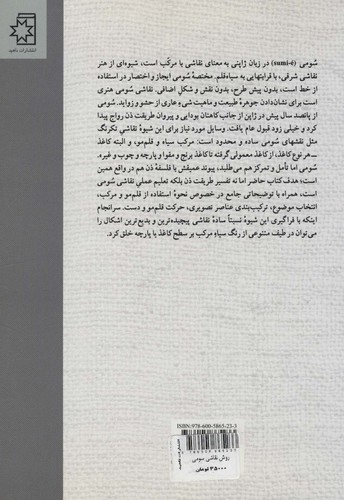 انتشارات ناهید
سُومی (sumi-é) در زبان ژاپنی به معنای نقاشی با مرکّب است، شیوه‌ای از هنر
نقاشی شرقی، با قرابتهایی به سیاه‌قلم. مختصهٔ سُومی ایجاز و اختصار در استفاده
از خط است، بدون پیش طرح، بدون نقش و شکلِ اضافی. نقاشی سُومی هنری
است برای نشان‌دادن جوهرهٔ طبیعت و ماهیت شیء عاری از حشو و زواید.
از پانصد سال پیش در ژاپن از جانب کاهنان بودایی و پیروان طریقت ذن رواج پیدا
کرد و خیلی زود قبول عام یافت. وسایل مورد نیاز برای این شیوهٔ نقاشیِ تکرنگ
مثل نقشهای سُومی ساده و محدود است: مرکب سیاه و قلم‌مو، و البته کاغذ
ـــ هر نوع کاغذ، از کاغذ معمولی گرفته تا کاغذ برنج و مقوا و پارچه و چوب و غیره.
سُومی اما تأمل و تمرکز هم می‌طلبد، پیوند عمیقش با فلسفهٔ ذن هم در واقع همین
است؛ هدف کتاب حاضر اما نه تفسیر طریقت ذن بلکه تعلیم عملی نقاشی سُومی
است، همراه با توضیحاتی جامع در خصوص نحوهٔ استفاده از قلم‌مو و مرکب،
انتخاب موضوع، ترکیب‌بندی عناصر تصویری، حرکت قلم‌مو و دست. سرانجام
اینکه با فراگیری این شیوهٔ نسبتاً سادهٔ نقاشی پیچیده‌ترین و بدیع‌ترین اشکال را
می‌توان در طیف متنوعی از رنگ سیاهِ مرکب بر سطح کاغذ یا پارچه خلق کرد.
ISBN:978-600-5865-23-3
روش نقاشی سومی
۳۵۰۰۰ تومان